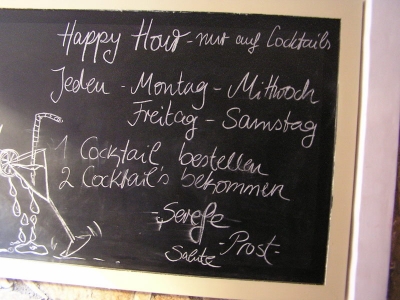 Happy Hour - nur auf Cocktails
Jeden - Montag - Mittwoch
Freitag - Samstag
1 Cocktail bestellen
2 Cocktail's bekommen
- Şerefe
- Prost -
Salute